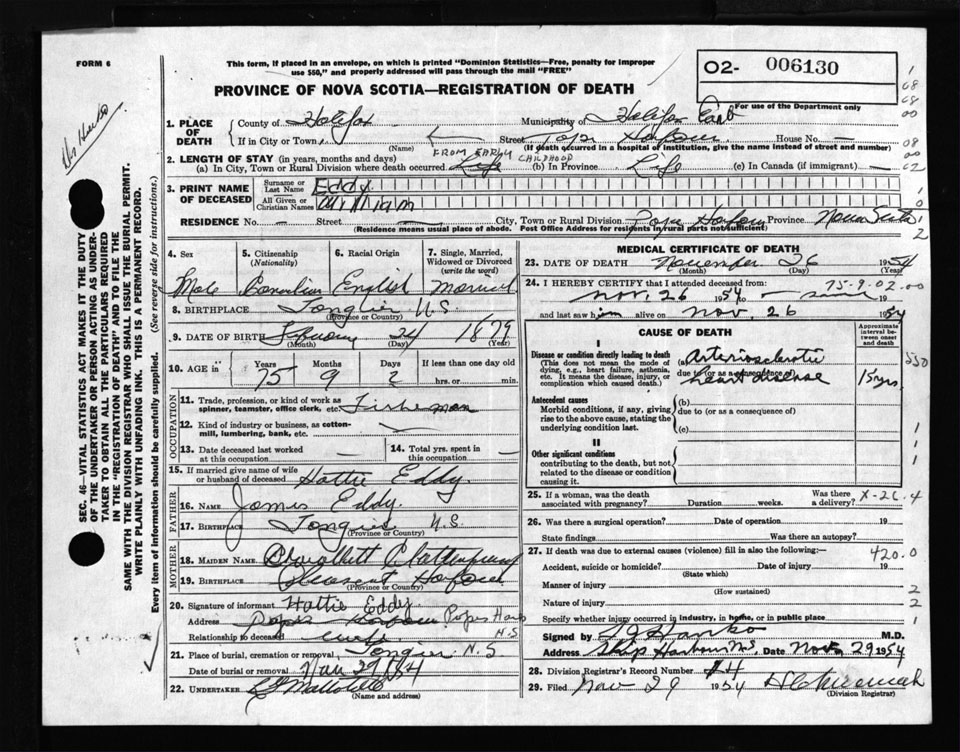 FORM 6
This form, if placed in an envelope, on which is printed "Dominion Statistics—Free, penalty for improper
use $50," and properly addressed will pass through the mail "FREE"
PROVINCE OF NOVA SCOTIA—REGISTRATION OF DEATH
02- 006130
For use of the Department only
SEC. 46—VITAL STATISTICS ACT MAKES IT THE DUTY
OF THE UNDERTAKER OR PERSON ACTING AS UNDER-
TAKER TO OBTAIN ALL THE PARTICULARS REQUIRED
IN THE "REGISTRATION OF DEATH" AND TO FILE THE
SAME WITH THE DIVISION REGISTRAR WHO SHALL ISSUE THE BURIAL PERMIT.
WRITE PLAINLY WITH UNFADING INK. THIS IS A PERMANENT RECORD.
Every item of information should be carefully supplied. (See reverse side for instructions.)
1. PLACE OF DEATH
County of Halifax Municipality of Halifax East
If in City or Town Street Popes Harbour House No. —
(Name) (If death occurred in a hospital or institution, give the name instead of street and number)
2. LENGTH OF STAY (in years, months and days) FROM EARLY CHILDHOOD
(a) In City, Town or Rural Division where death occurred Life (b) In Province Life (c) In Canada (if immigrant) —
3. PRINT NAME OF DECEASED
Surname or Last Name Eddy
All Given or Christian Names William
RESIDENCE No. — Street — City, Town or Rural Division Popes Harbour Province Nova Scotia
(Residence means usual place of abode. Post Office Address for residents in rural parts not sufficient)
4. Sex Male
5. Citizenship (Nationality) Canadian
6. Racial Origin English
7. Single, Married, Widowed or Divorced (write the word) Married
8. BIRTHPLACE Tangier N.S.
(Province or Country)
9. DATE OF BIRTH 24 1879
(Month) (Day) (Year)
10. AGE in Years 75 Months 9 Days 2 If less than one day old
hrs. or min.
OCCUPATION
11. Trade, profession, or kind of work as
spinner, teamster, office clerk, etc. Fisherman
12. Kind of industry or business, as cotton-
mill, lumbering, bank, etc.
13. Date deceased last worked
at this occupation —
14. Total yrs. spent in
this occupation —
15. If married give name of wife
or husband of deceased Hattie Eddy
FATHER
16. NAME James Eddy
17. BIRTHPLACE Tangier N.S.
(Province or Country)
MOTHER
18. MAIDEN NAME
19. BIRTHPLACE Pleasant Harbour
(Province or Country)
20. Signature of informant Hattie Eddy
Address Popes Harbour Popes Harb
N.S.
Relationship to deceased wife
21. Place of burial, cremation or removal Tangier N.S
Date of burial or removal Nov 29 1954
22. UNDERTAKER
(Name and address)
MEDICAL CERTIFICATE OF DEATH
23. DATE OF DEATH November 26 1954
(Month) (Day) (Year)
75-9-02.00
24. I HEREBY CERTIFY that I attended deceased from:
Nov. 26 1954 to
and last saw him alive on Nov. 26 1954
CAUSE OF DEATH
Approximate interval between onset and death
I
Disease or condition directly leading to death
(This does not mean the mode of
dying, e.g., heart failure, asthenia,
etc. It means the disease, injury, or
complication which caused death.)
(a) Arteriosclerotic
due to (or as a consequence of)
heart disease 15 yrs
Antecedent causes
Morbid conditions, if any, giving
rise to the above cause, stating the
underlying condition last.
(b)
due to (or as a consequence of)
(c)
II
Other significant conditions
contributing to the death, but not
related to the disease or condition
causing it.
25. If a woman, was the death
associated with pregnancy? Duration weeks. Was there
a delivery? X-26.4
26. Was there a surgical operation? Date of operation 19
State findings Was there an autopsy?
27. If death was due to external causes (violence) fill in also the following:— 420.0
Accident, suicide or homicide? Date of injury 19
(State which)
Manner of injury
(How sustained)
Nature of injury
Specify whether injury occurred in industry, in home, or in public place
Signed by M.D.
Address Ship Harbour NS Date Nov 29 1954
28. Division Registrar's Record Number 14
29. Filed Nov 29 1954
(Division Registrar)